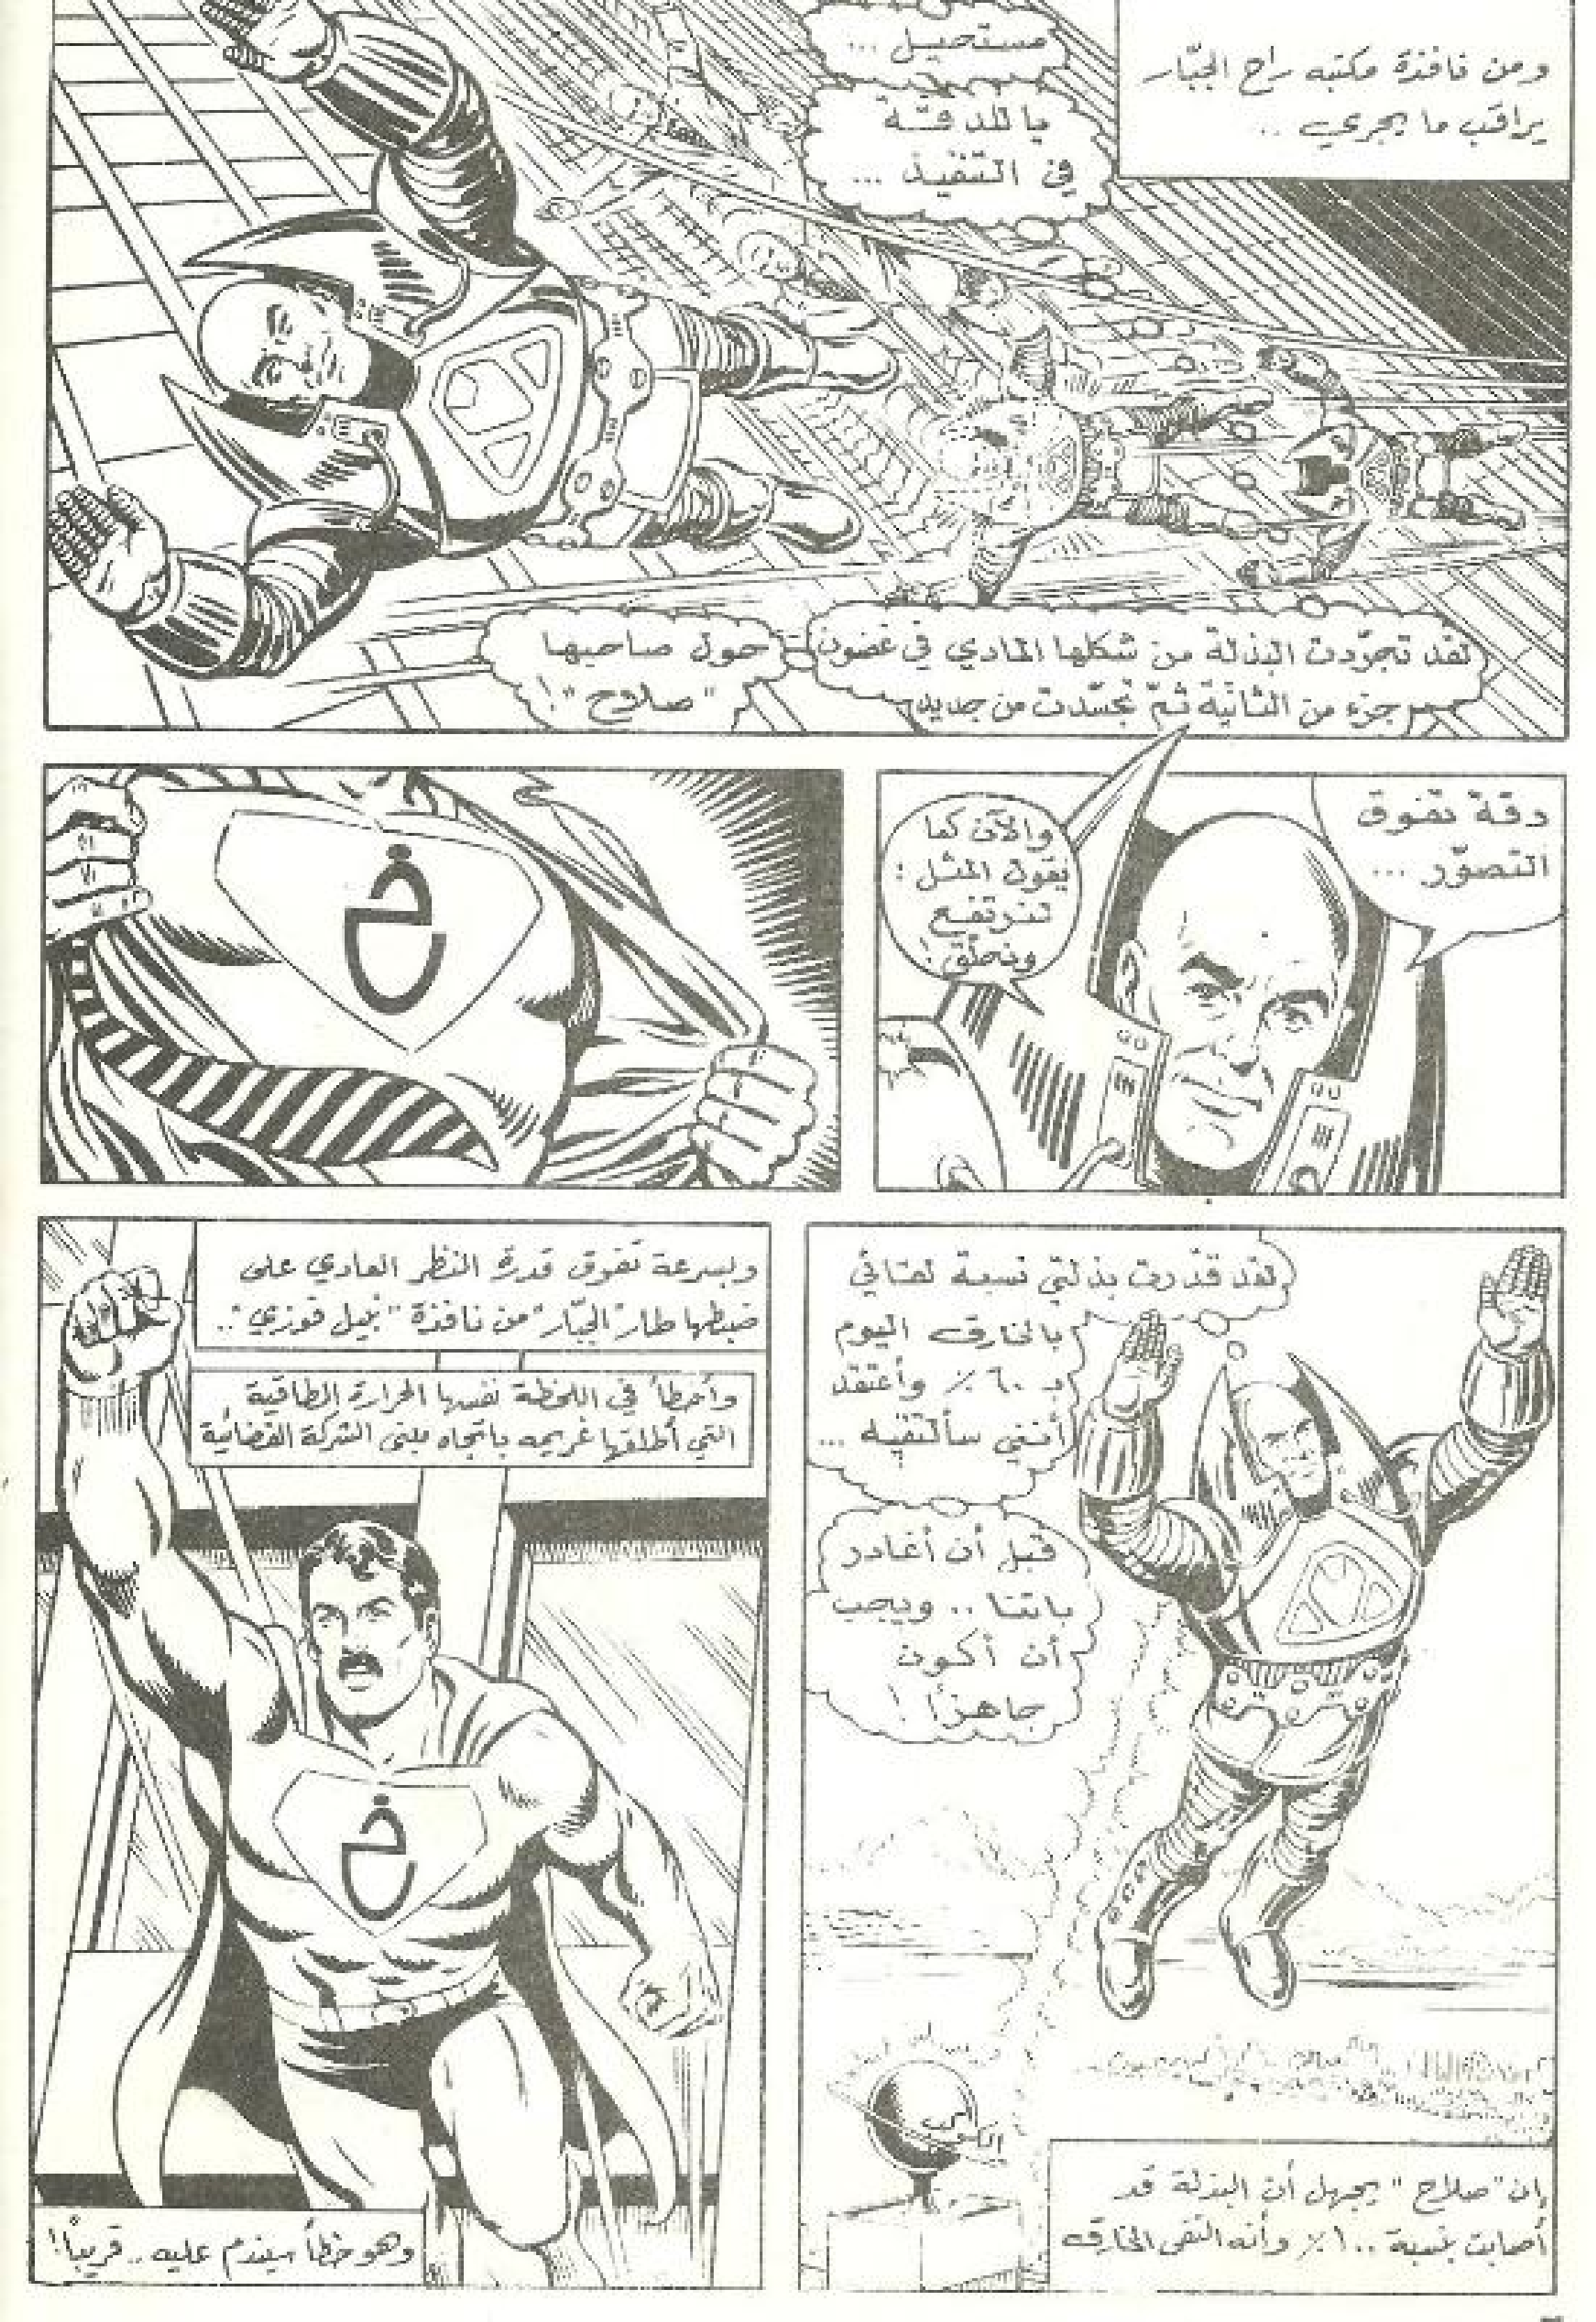 ومن نافذة مكتبه راح الجبّار
يراقب ما يجري ..
مستحيل ...
يا للدقّة
في التنفيذ ...
لقد تجرّدت البذلة من شكلها المادي في غضون
جزء من الثانية ثمّ تجسّدت من جديد
حول صاحبها
"صلاح"!
دقة تفوق
التصوّر ...
والآن كما
يقول المثل:
لنرتفع
ونحلّق!
خ
لقد قدّرت بذلتي نسبة لقائي
بالخارق اليوم
بـ ٦٠٪ وأعتقد
أنني سألتقيه ...
قبل أن أغادر
باتنا .. ويجب
أن أكون
جاهزاً!
الكوكب
إن "صلاح" يجهل أن البذلة قد
أصابت بنسبة ١٠٠٪ وأنه التقى الخارق
وبسرعة تفوق قدرة النظر العادي على
ضبطها طار "الجبّار" من نافذة "نبيل فوزي" ..
وأخطأ في اللحظة نفسها الحرارة الطاقية
التي أطلقها غريمه باتجاه مبنى الشركة الفضائية
خ
وهو خطأ سيندم عليه .. قريباً!